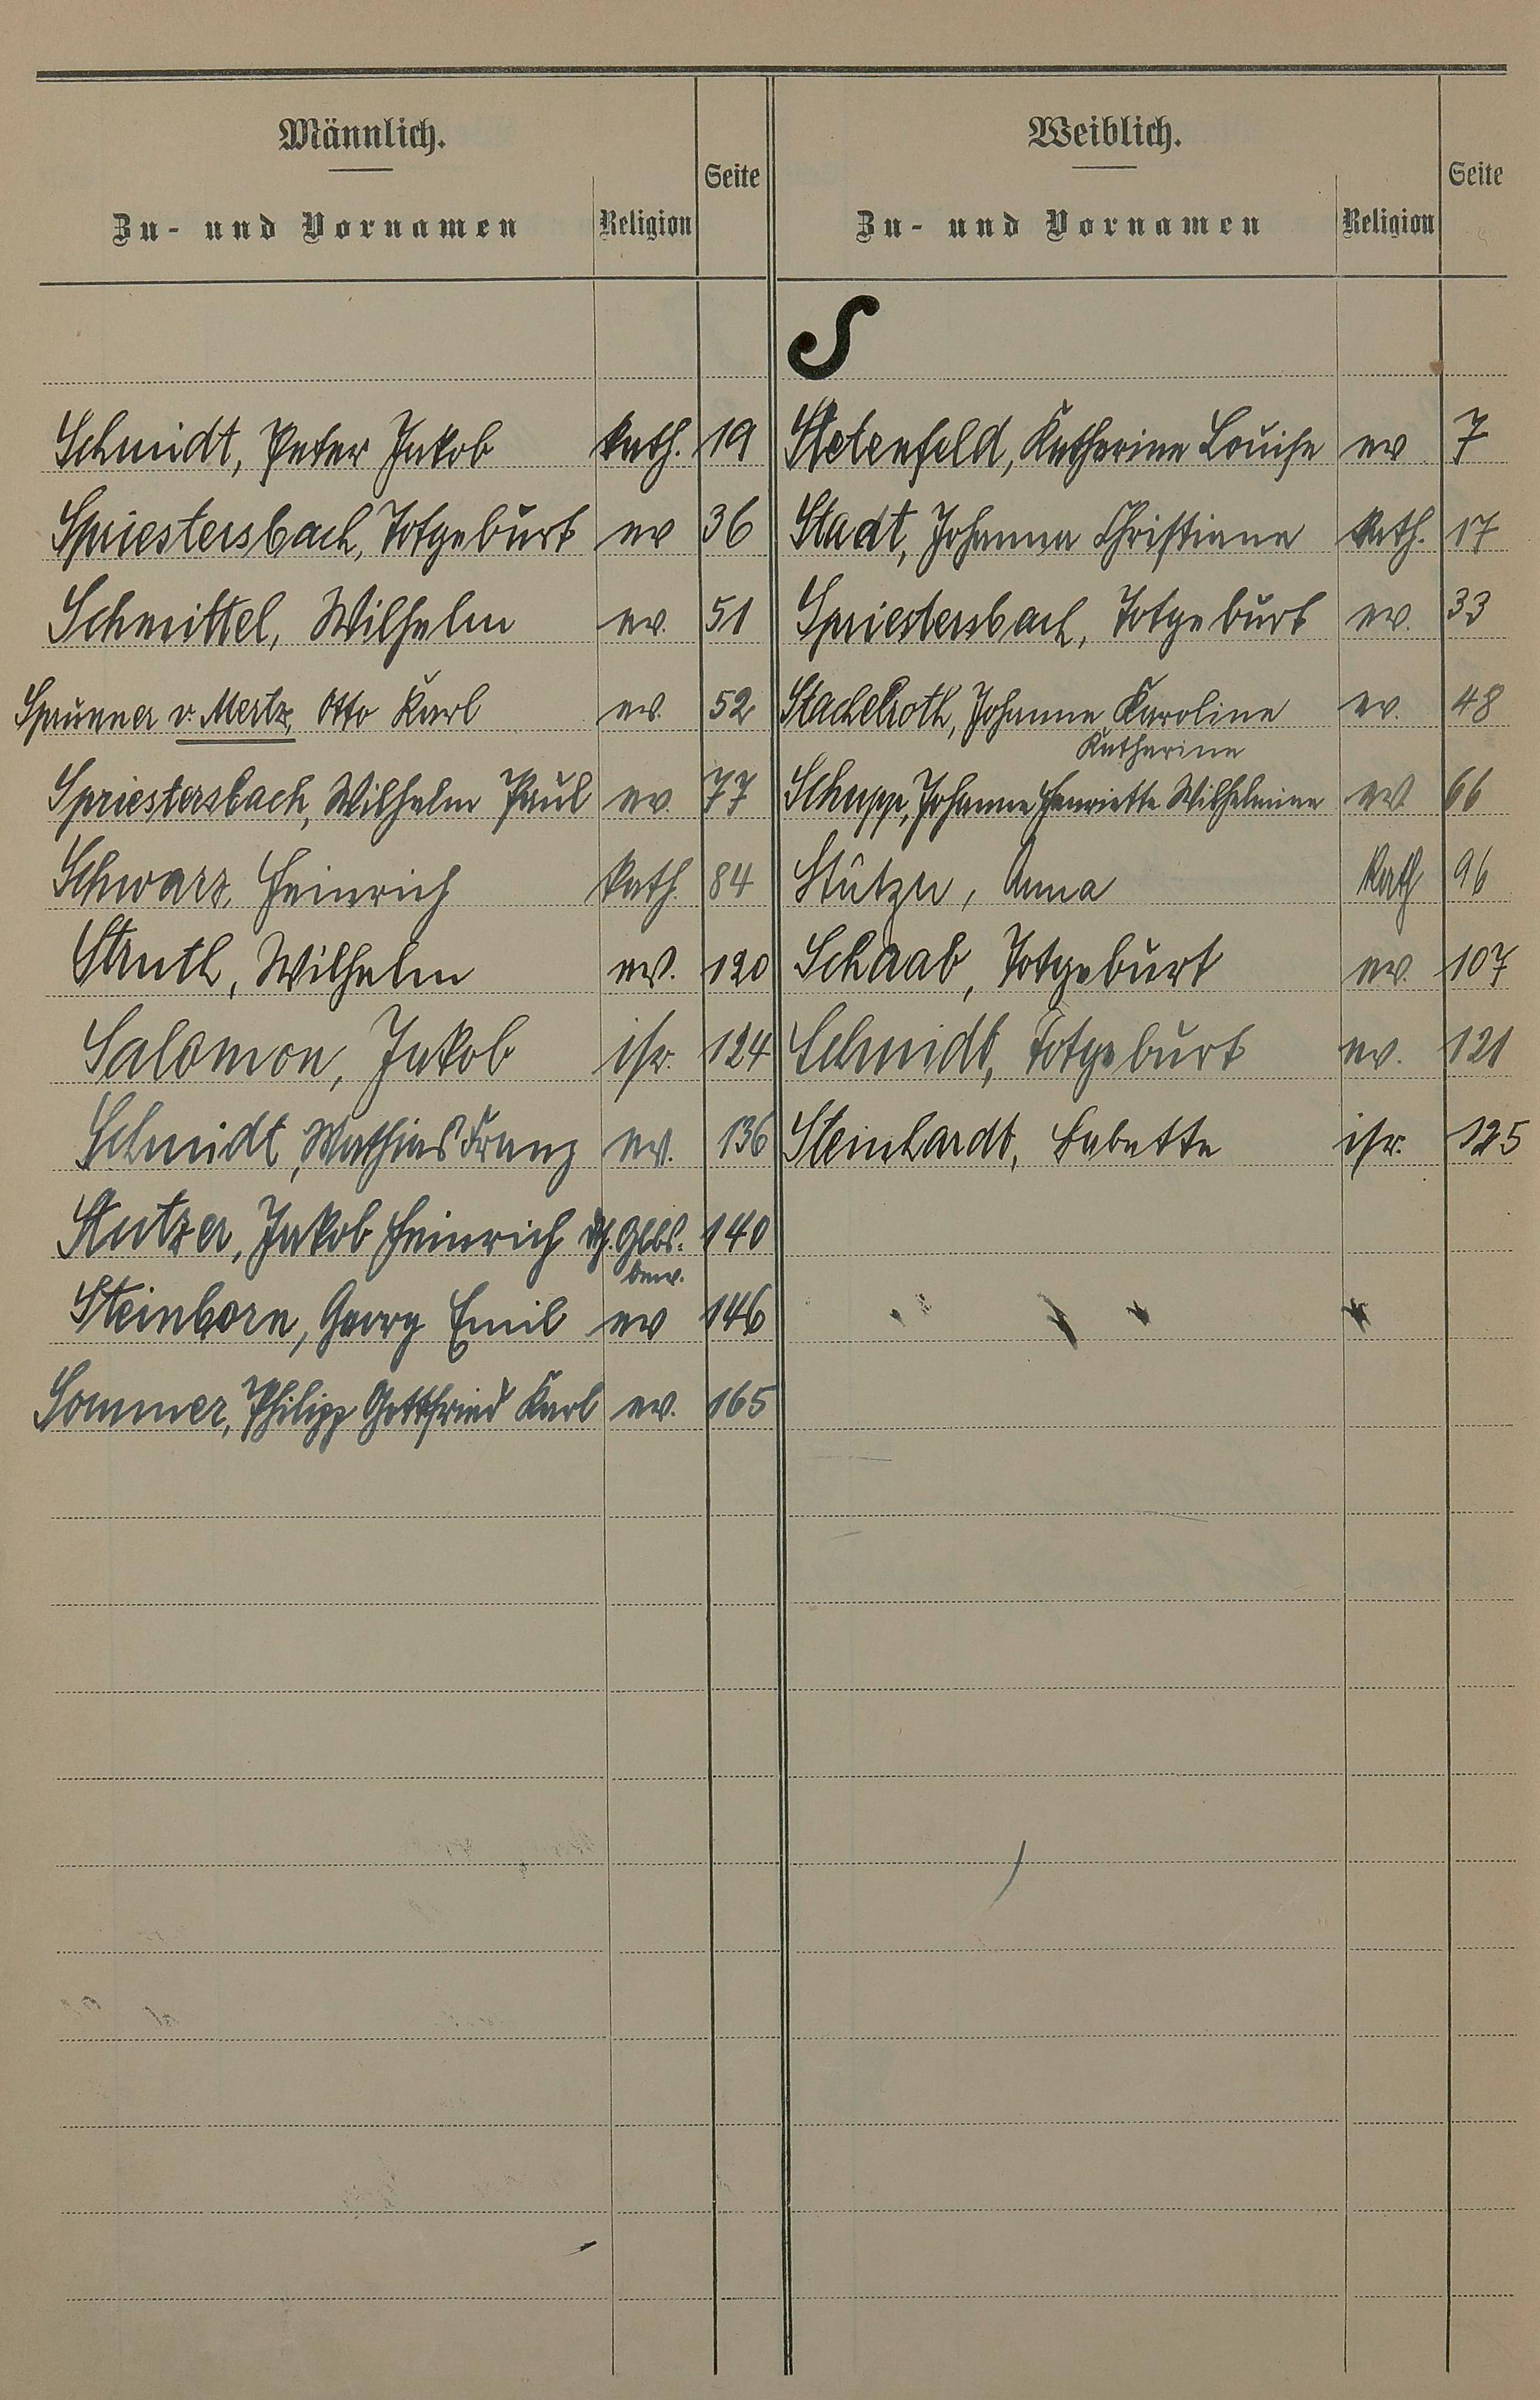 Männlich.
Zu- und Vornamen Religion Seite
Weiblich.
Zu- und Vornamen Religion Seite
S
Schmidt, Peter Jakob kath. 19
Spriestersbach, Totgeburt ev 36
Schmittel, Wilhelm ev. 51
Sprunner v. Mertz, Otto Karl ev. 52
Spriestersbach, Wilhelm Paul ev. 77
Schwarz, Heinrich kath. 84
Struth, Wilhelm ev. 120
Salomon, Jakob isr. 124
Schmidt, Mathias Franz ev. 136
Stutzer, Jakob Heinrich Glbs. 140
Steinborn, Georg Emil ev 146
Sommer, Philipp Gottfried Karl ev. 165
Katharine Louise ev 7
Stadt, Johanna Christiane kath. 17
Spriestersbach, Totgeburt ev. 33
Stachelroth, Johanna Karoline ev. 48
Katharine
Schupp, Johanna Henriette Wilhelmine ev 66
Anna kath 96
Schaab, Totgeburt ev. 107
Schmidt, Totgeburt ev. 121
Steinhardt, Babette isr. 125